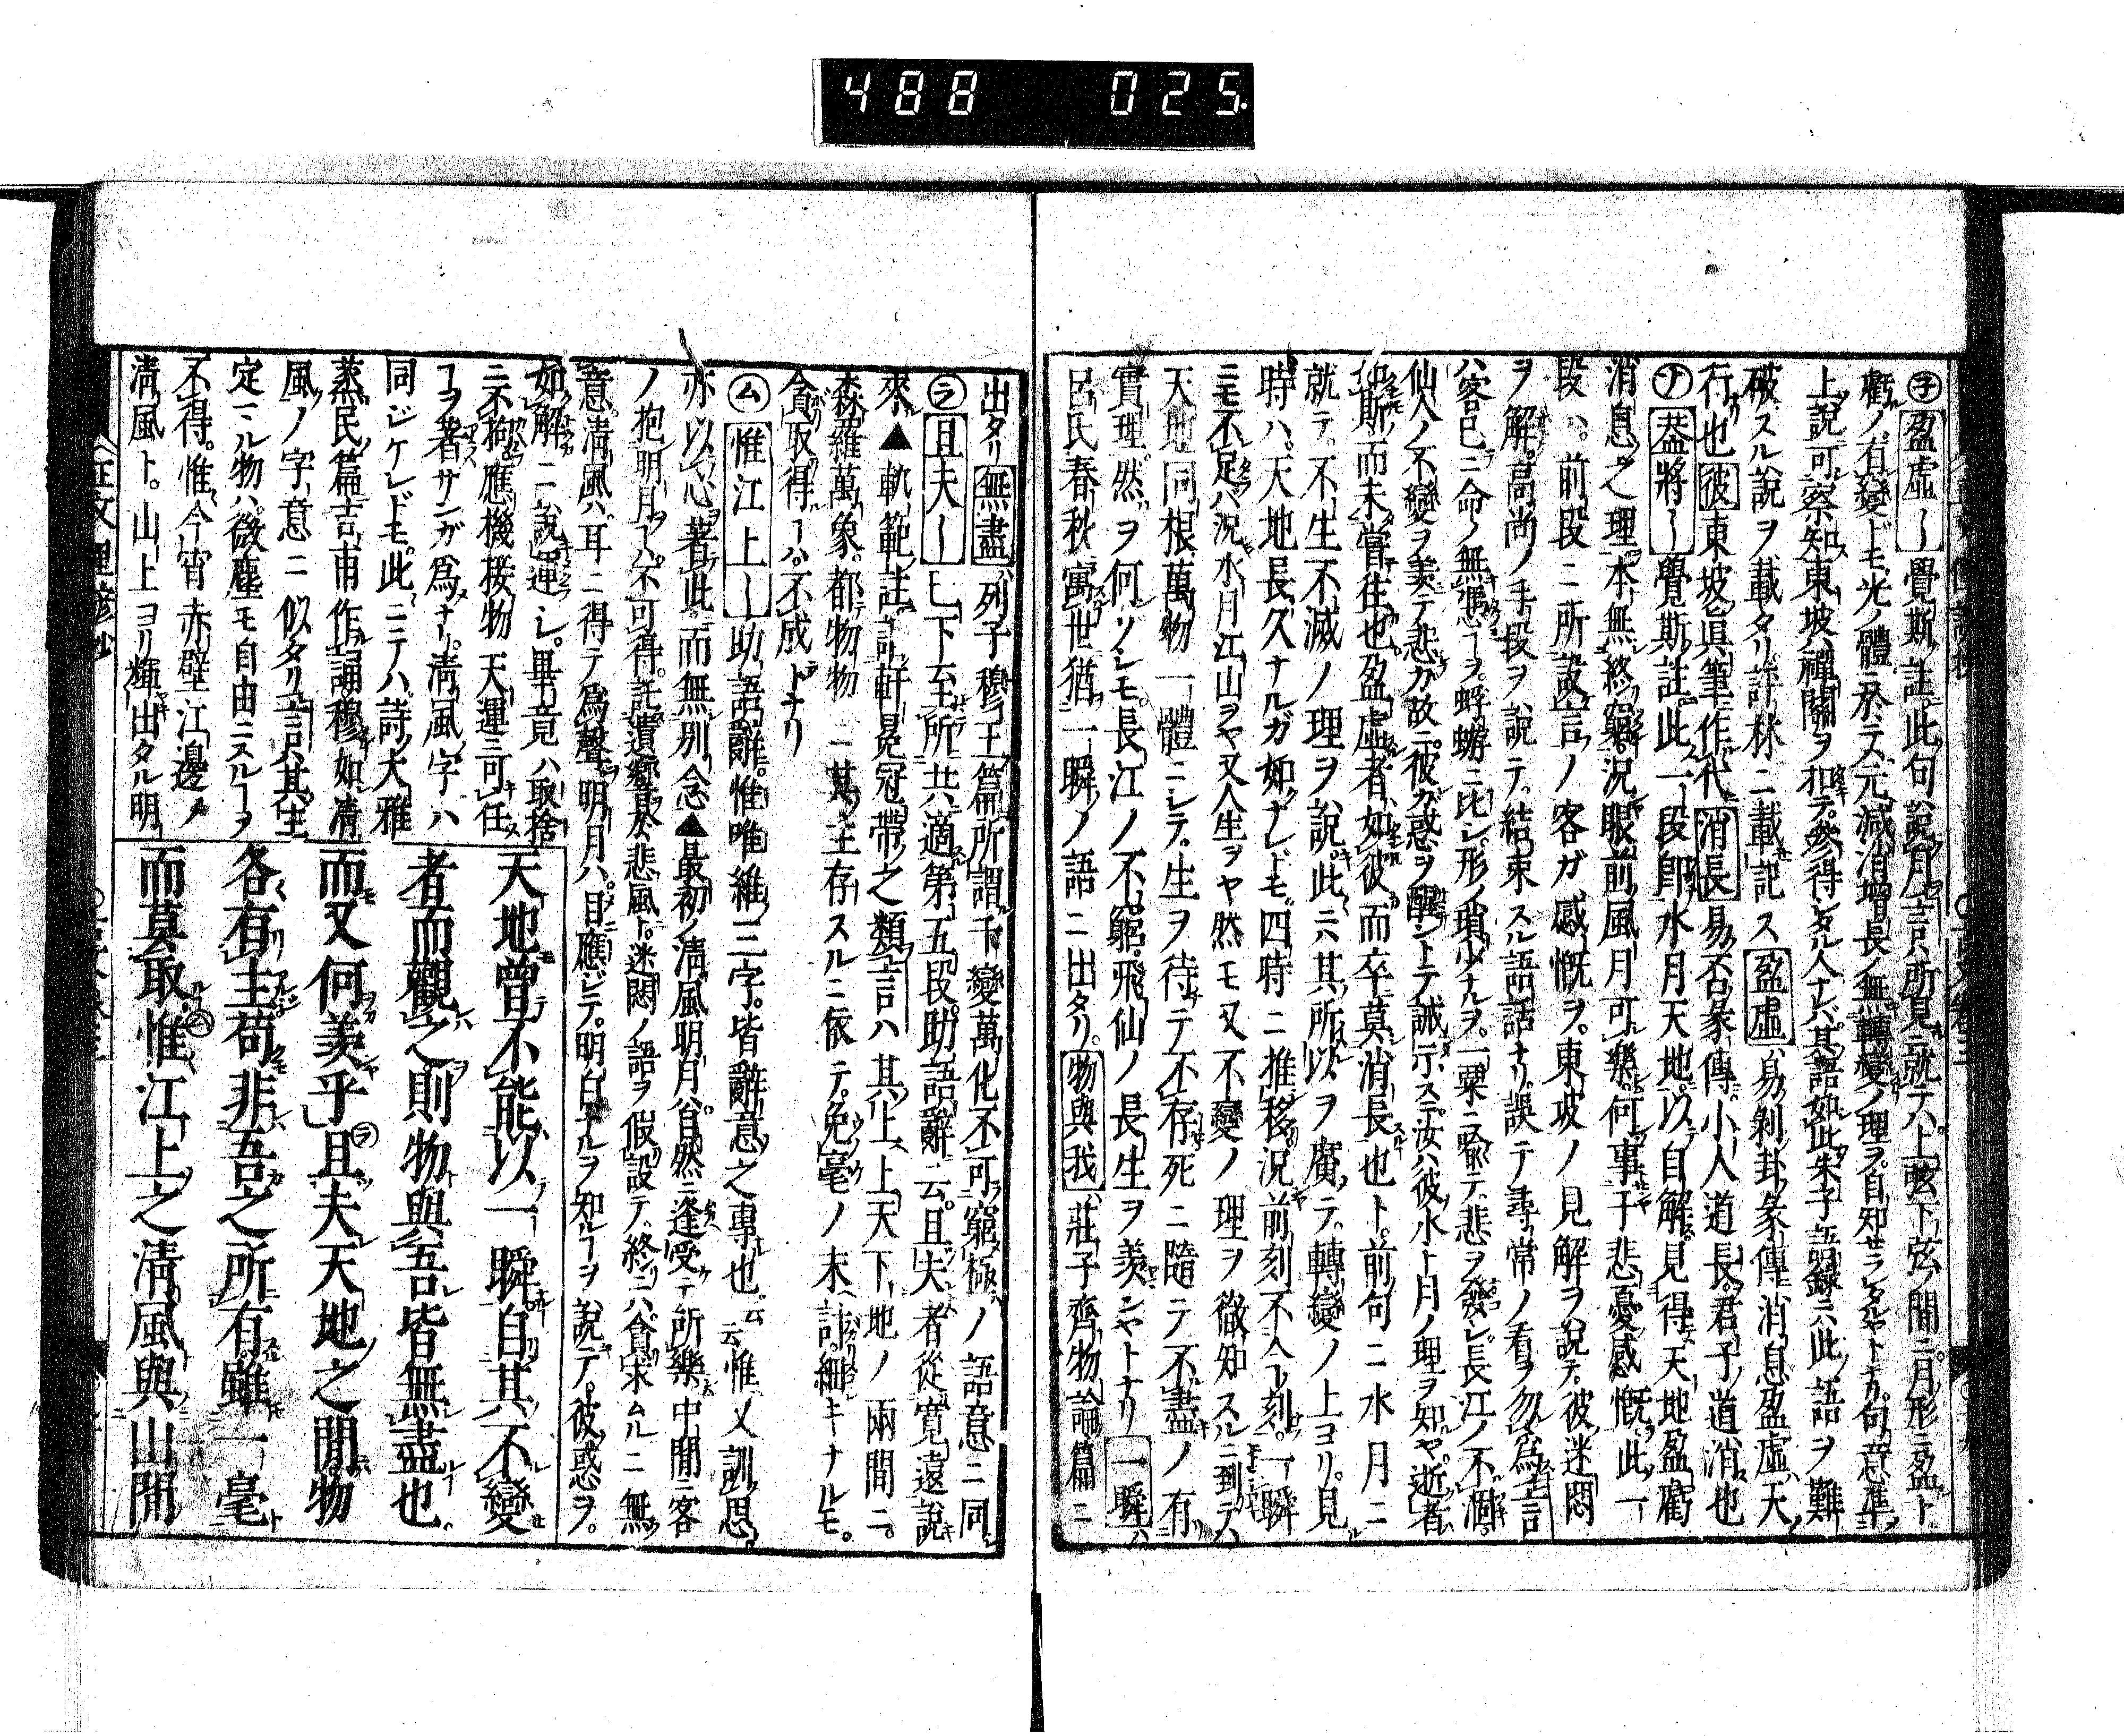 488 025.
㋧盈虛〡覺斯註此句說月言ハ所見ニ就テハ上弦下弦ノ間ニ月形ニ盈ト
虧ノ有變ドモ光ノ體ニ於テハ元減消增長ノ無轉變ノ理ヲ自知セラレタルヤトナリ句意準
上說可察知東坡禪關ヲ扣テ參得シタル人ナレバ其語如此朱子語錄ニハ此語ヲ難
破スル說ヲ載タリ詩林ニ載記ス盈虛易剝卦彖傳消息盈虛天
行也彼東坡眞筆作代消長易否彖傳小人道長君子道消也
㋤葢將〡覺斯註此一段卽水月天地以自解見得天地盈虧
消息之理本無終窮況眼前風月可樂何事于悲憂感慨此一
段ハ前段ニ所設言ノ客ガ感慨ヲ東坡ノ見解ヲ說テ彼迷悶
ヲ解高尚ノ手段ヲ說テ結束スル語話ナリ誤テ尋常ノ看ヲ勿爲言
ハ客已ニ命ノ無憑ヿヲ蜉蝣ニ比シ形ノ瑣少ナルヲ一粟ニ喩テ悲ヲ發シ長江ノ不涸
仙人ノ不變ヲ羨テ悲ガ故ニ彼ガ惑ヲ醒ントテ誡示ス汝ハ彼水ト月ノ理ヲ知ヤ逝者
如斯而未嘗往也盈虛者如彼而卒莫消長也ト前句ニ水月ニ
就テ不生不滅ノ理ヲ說此ニハ其所以ヲ廣テ轉變ノ上ヨリ見
時ハ天地長久ナルガ如ナレドモ四時ニ推移況前刻不今刻一瞬
ニモ不足ハ況水月江山ヲヤ又人生ヲヤ然モ又不變ノ理ヲ徹知スルニ到テハ
天地同根萬物一體ニシテ生ヲ待テ不存死ニ隨テ不盡ノ有
實理然ヲ何ソシモ長江ノ不窮飛仙ノ長生ヲ羨ンヤトナリ一瞬ハ
呂氏春秋寓世猶一瞬ノ語ニ出タリ物與我莊子齊物論篇ニ
出タリ無盡列子穆王篇所謂千變萬化不可窮極ノ語意ニ同
㋶且夫〡乚下至所共適第五段助語辭云且夫者從寬遠說
來▲軌範註訂軒冕冠帶之類言ハ其上上天下地ノ兩間ニ
森羅萬象都テ物物ニ其主存スルニ依テ兔毫ノ末計細キナルモ
貪取得ヿハ不成トナリ
㋰惟江上〡助語辭惟唯維三字皆辭意之專也云云惟乂訓思
亦以心著此而無別念▲最初ノ淸風明月ハ自然ニ逢受テ所樂中間ニ客
ノ抱明月ヿハ不可得託遺響於悲風ト迷悶ノ語ヲ假設テ終ニハ貪求ムルニ無
意淸風ハ耳ニ得テ爲聲明月ハ目應ジテ明白ナルヲ知ルヿヲ說テ彼惑ヲ
如解ニ說運シ畢竟ハ取捨
ニ不拘應機接物天運ニ可任
ヿヲ著サンガ爲ナリ淸風字ハ
同ジケレドモ此ニテハ詩大雅
蒸民篇吉甫作誦穆如淸
風ノ字意ニ似タリ言ハ其主
定マル物ハ微塵モ自由ニスルヿヲ
不得惟今宵赤壁江邊ノ
淸風ト山上ヨリ輝出タル明
天地曾不能以一瞬自其不變
者而觀之則物與吾皆無盡也
而又何羨乎㋶且夫天地之間物
各有主苟非吾之所有雖一毫
而莫取㋰惟江上之淸風與山間